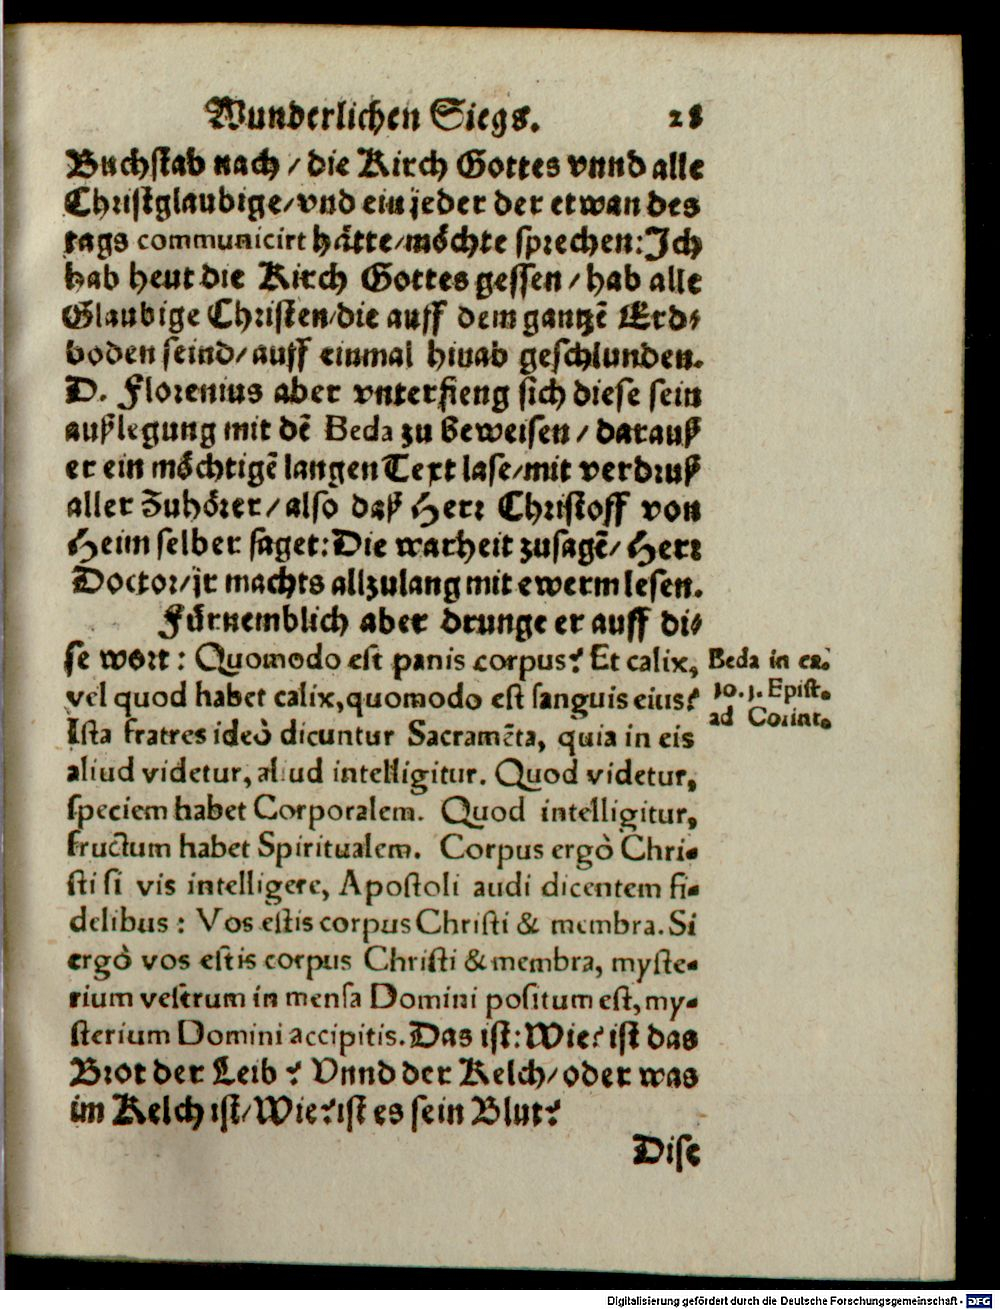 Wunderlichen Siegs. 28
Buchstab nach / die Kirch Gottes vnnd alle
Christglaubige/vnd ein jeder der etwan des
tags communicirt hätte/möchte sprechen:Jch
hab heut die Kirch Gottes gessen / hab alle
Glaubige Christen/die auff dem gantzē Erd⸗
boden seind/auff einmal hinab geschlunden.
D. Florenius aber vnterfieng sich diese sein
außlegung mit dē Beda zu beweisen / darauß
er ein möchtigē langen Text lase/mit verdruß
aller Zuhörer/also daß Herr Christoff von
Heim selber saget:Die warheit zusagē/Herr
Doctor/jr machts allzulang mit ewerm lesen.
Fürnemblich aber drunge er auff di⸗
se wort: Quomodo est panis corpus? Et calix,
vel quod habet calix,quomodo est sanguis eius?
Ista fratres ideò dicuntur Sacramēta, quia in eis
aliud videtur, aliud intelligitur. Quod videtur,
speciem habet Corporalem. Quod intelligitur,
fructum habet Spiritualem. Corpus ergò Chri-
sti si vis intelligere, Apostoli audi dicentem fi-
delibus: Vos estis corpus Christi & membra. Si
ergò vos estis corpus Christi & membra, myste-
rium vestrum in mensa Domini positum est, my-
sterium Domini accipitis. Das ist:Wie? ist das
Brot der Leib? Vnnd der Kelch/oder was
im Kelch ist/Wie? ist es sein Blut?
Beda in ca.
10. 1. Epist.
ad Corint.
Dise
Digitalisierung gefördert durch die Deutsche Forschungsgemeinschaft - DFG